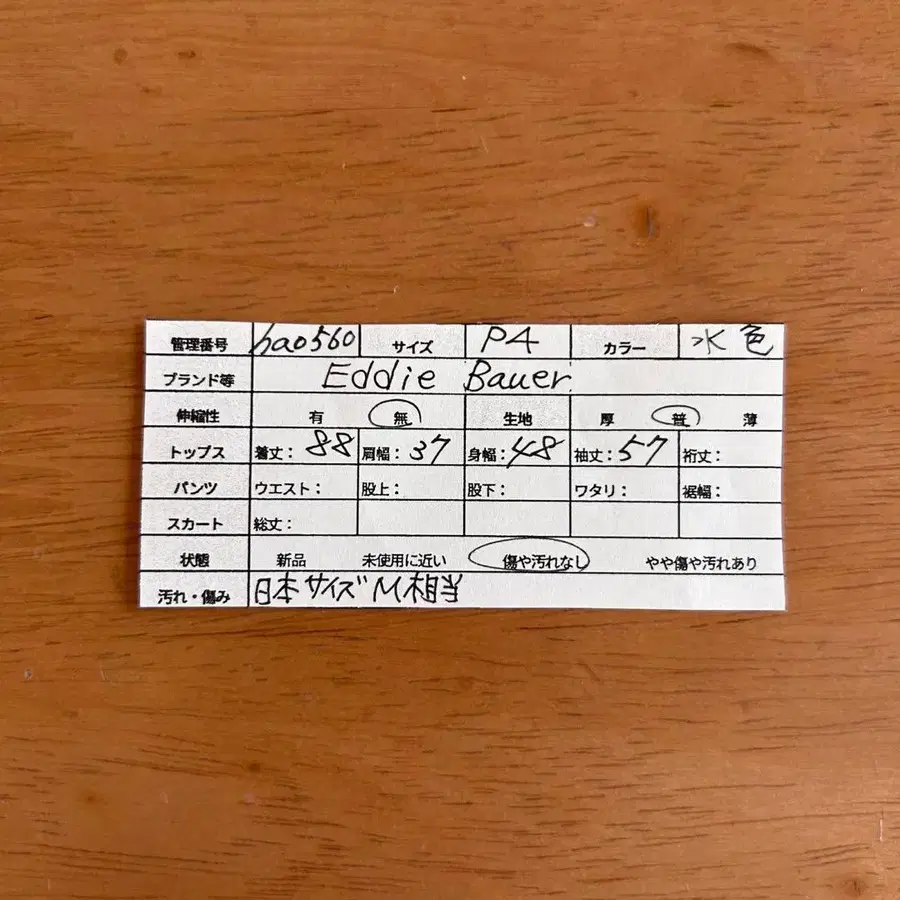 管理番号 hao560 サイズ P4 カラー 水色
ブランド等 Eddie Bauer
伸縮性 有 無 生地 厚 普 薄
トップス 着丈：88 肩幅：37 身幅：48 袖丈：57 裄丈：
パンツ ウエスト： 股上： 股下： ワタリ： 裾幅：
スカート 総丈：
状態 新品 未使用に近い 傷や汚れなし やや傷や汚れあり
汚れ・傷み 日本サイズM相当